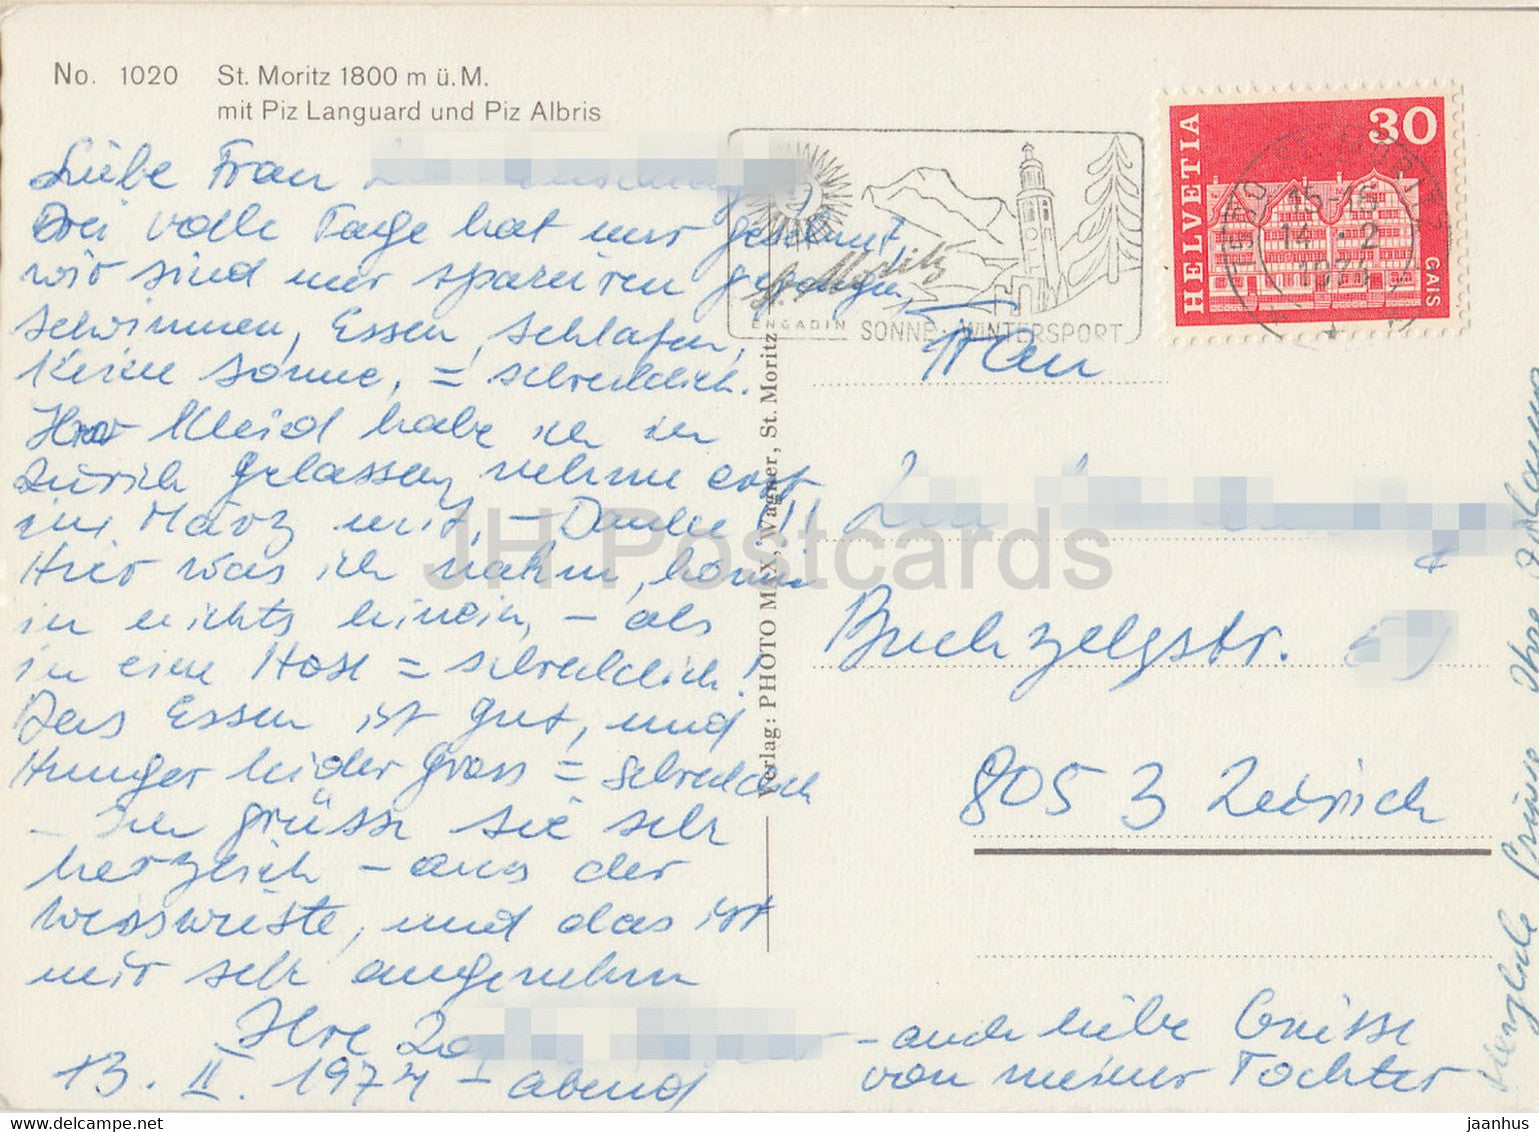 No. 1020 St. Moritz 1800 m ü. M.
mit Piz Languard und Piz Albris
Liebe Frau
Drei volle Tage hat nur geschneit,
wir sind nur spazieren gegangen,
schwimmen, Essen, schlafen,
Keine Sonne, = schrecklich.
Ihr Kleid habe ich in
Zürich gelassen, nehme erst
im März mit, – Danke!!!
Hier was ich nahm, komme
in nichts hinein, – als
in eine Hose = schrecklich!
Das Essen ist gut, und
Hunger leider gross = schrecklich
– Ich grüsse sie sehr
herzlich – aus der
weisswüste, und das ist
mir sehr angenehm
Ihre
13. II. 1974 – abend
– auch liebe Grüsse
von meiner Tochter
Verlag: PHOTO MAX, Wagner, St. Moritz
St. Moritz
ENGADIN SONNE · WINTERSPORT
HELVETIA
30
GAIS
15-16
14.-2
1974
Frau
Buchzelgstr.
8053 Zürich
JH Postcards
delcampe.net
jaanhus